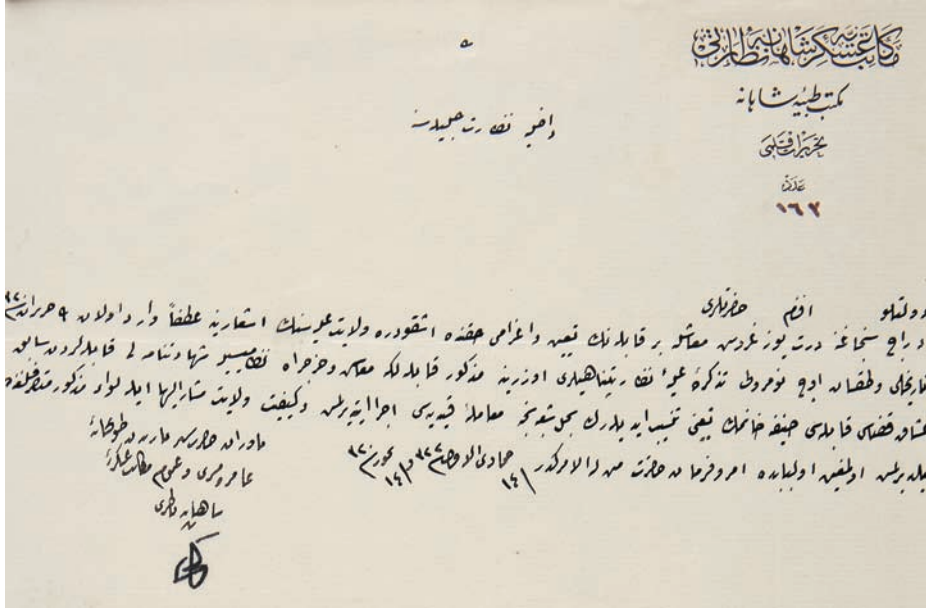 مكاتب عسكريۀ شاهانه نظارتى
مكتب طبيۀ شاهانه
تحريرات قلمى
عدد
١٦٢
داخليه نظارت جليله سنه
دولتلو افندم حضرتلرى
دراج سنجاغنه درت يوز غروش معاشله بر قابله نك تعيين واعزامى حقنده اشقودره ولايت عليه سنك اشعارينه عطفاً وارد اولان ٩ حزيران ٣٢٠
تاريخلى وطقسان اوچ نومرولى تذكرۀ عليۀ نظارتپناهيلرى اوزرينه مذكور قابله لك معاش وخرجراه شهادتنامه لى قابله لردن سابق
عشاق قضاسى قابله سى خانمك تعيينى ايديله رك معاملۀ قيديه سى اجرا ايتديرلمش وكيفيت ولايت مشار اليها ايله لواء مذكور متصرفلغنه
بيلديرلمش اولمغين اولبابده امر وفرمان حضرت من له الامركدر ١٤ جمادى الاولى ٣٢٢ و ١٤ تموز ٣٢٠
عامره مشيرى وعموم مكاتب عسكريۀ
شاهانه ناظرى